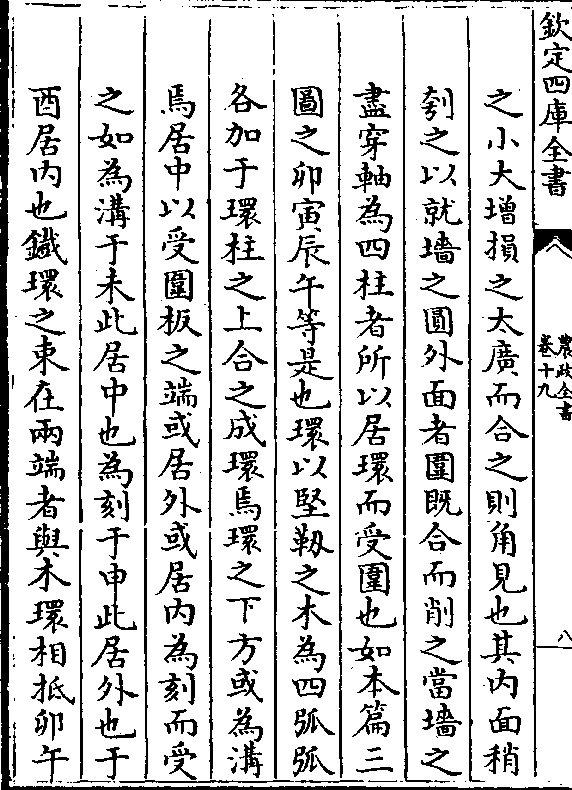 欽定四庫全書
農政全書
卷十九
八
之小大增損之太廣而合之則角見也其内面稍
刳之以就墻之圓外面者圍既合而削之當墻之
盡穿軸為四柱者所以居環而受圍也如本篇三
圖之卯寅辰午等是也環以堅靱之木為四弧弧
各加于環柱之上合之成環焉環之下方或為溝
焉居中以受圍板之端或居外或居内為刻而受
之如為溝于未此居中也為刻于申此居外也于
酉居内也鐵環之束在兩端者與木環相抵卯午